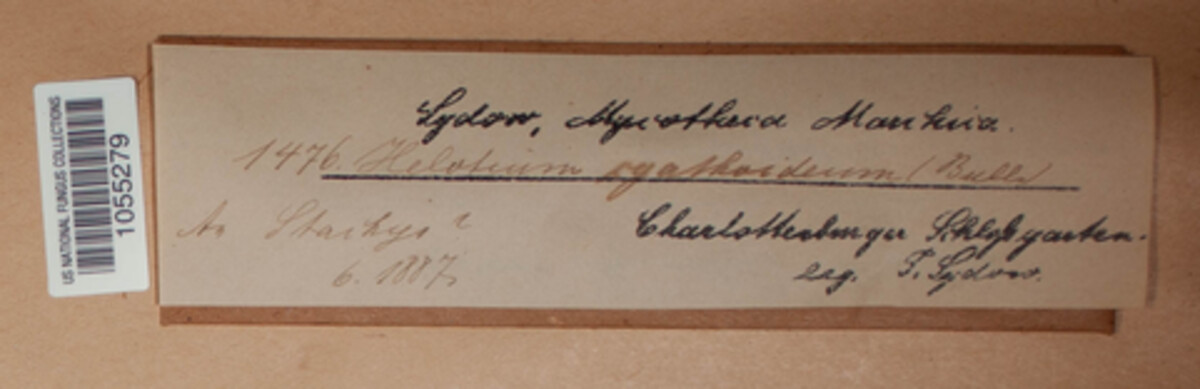 US NATIONAL FUNGUS COLLECTIONS
1055279
Sydow, Mycotheca Marchica.
1476. Helotium cyathoideum (Bull.)
An Stachys?
6. 1887.
Charlottenburger Schloßgarten.
leg. P. Sydow.